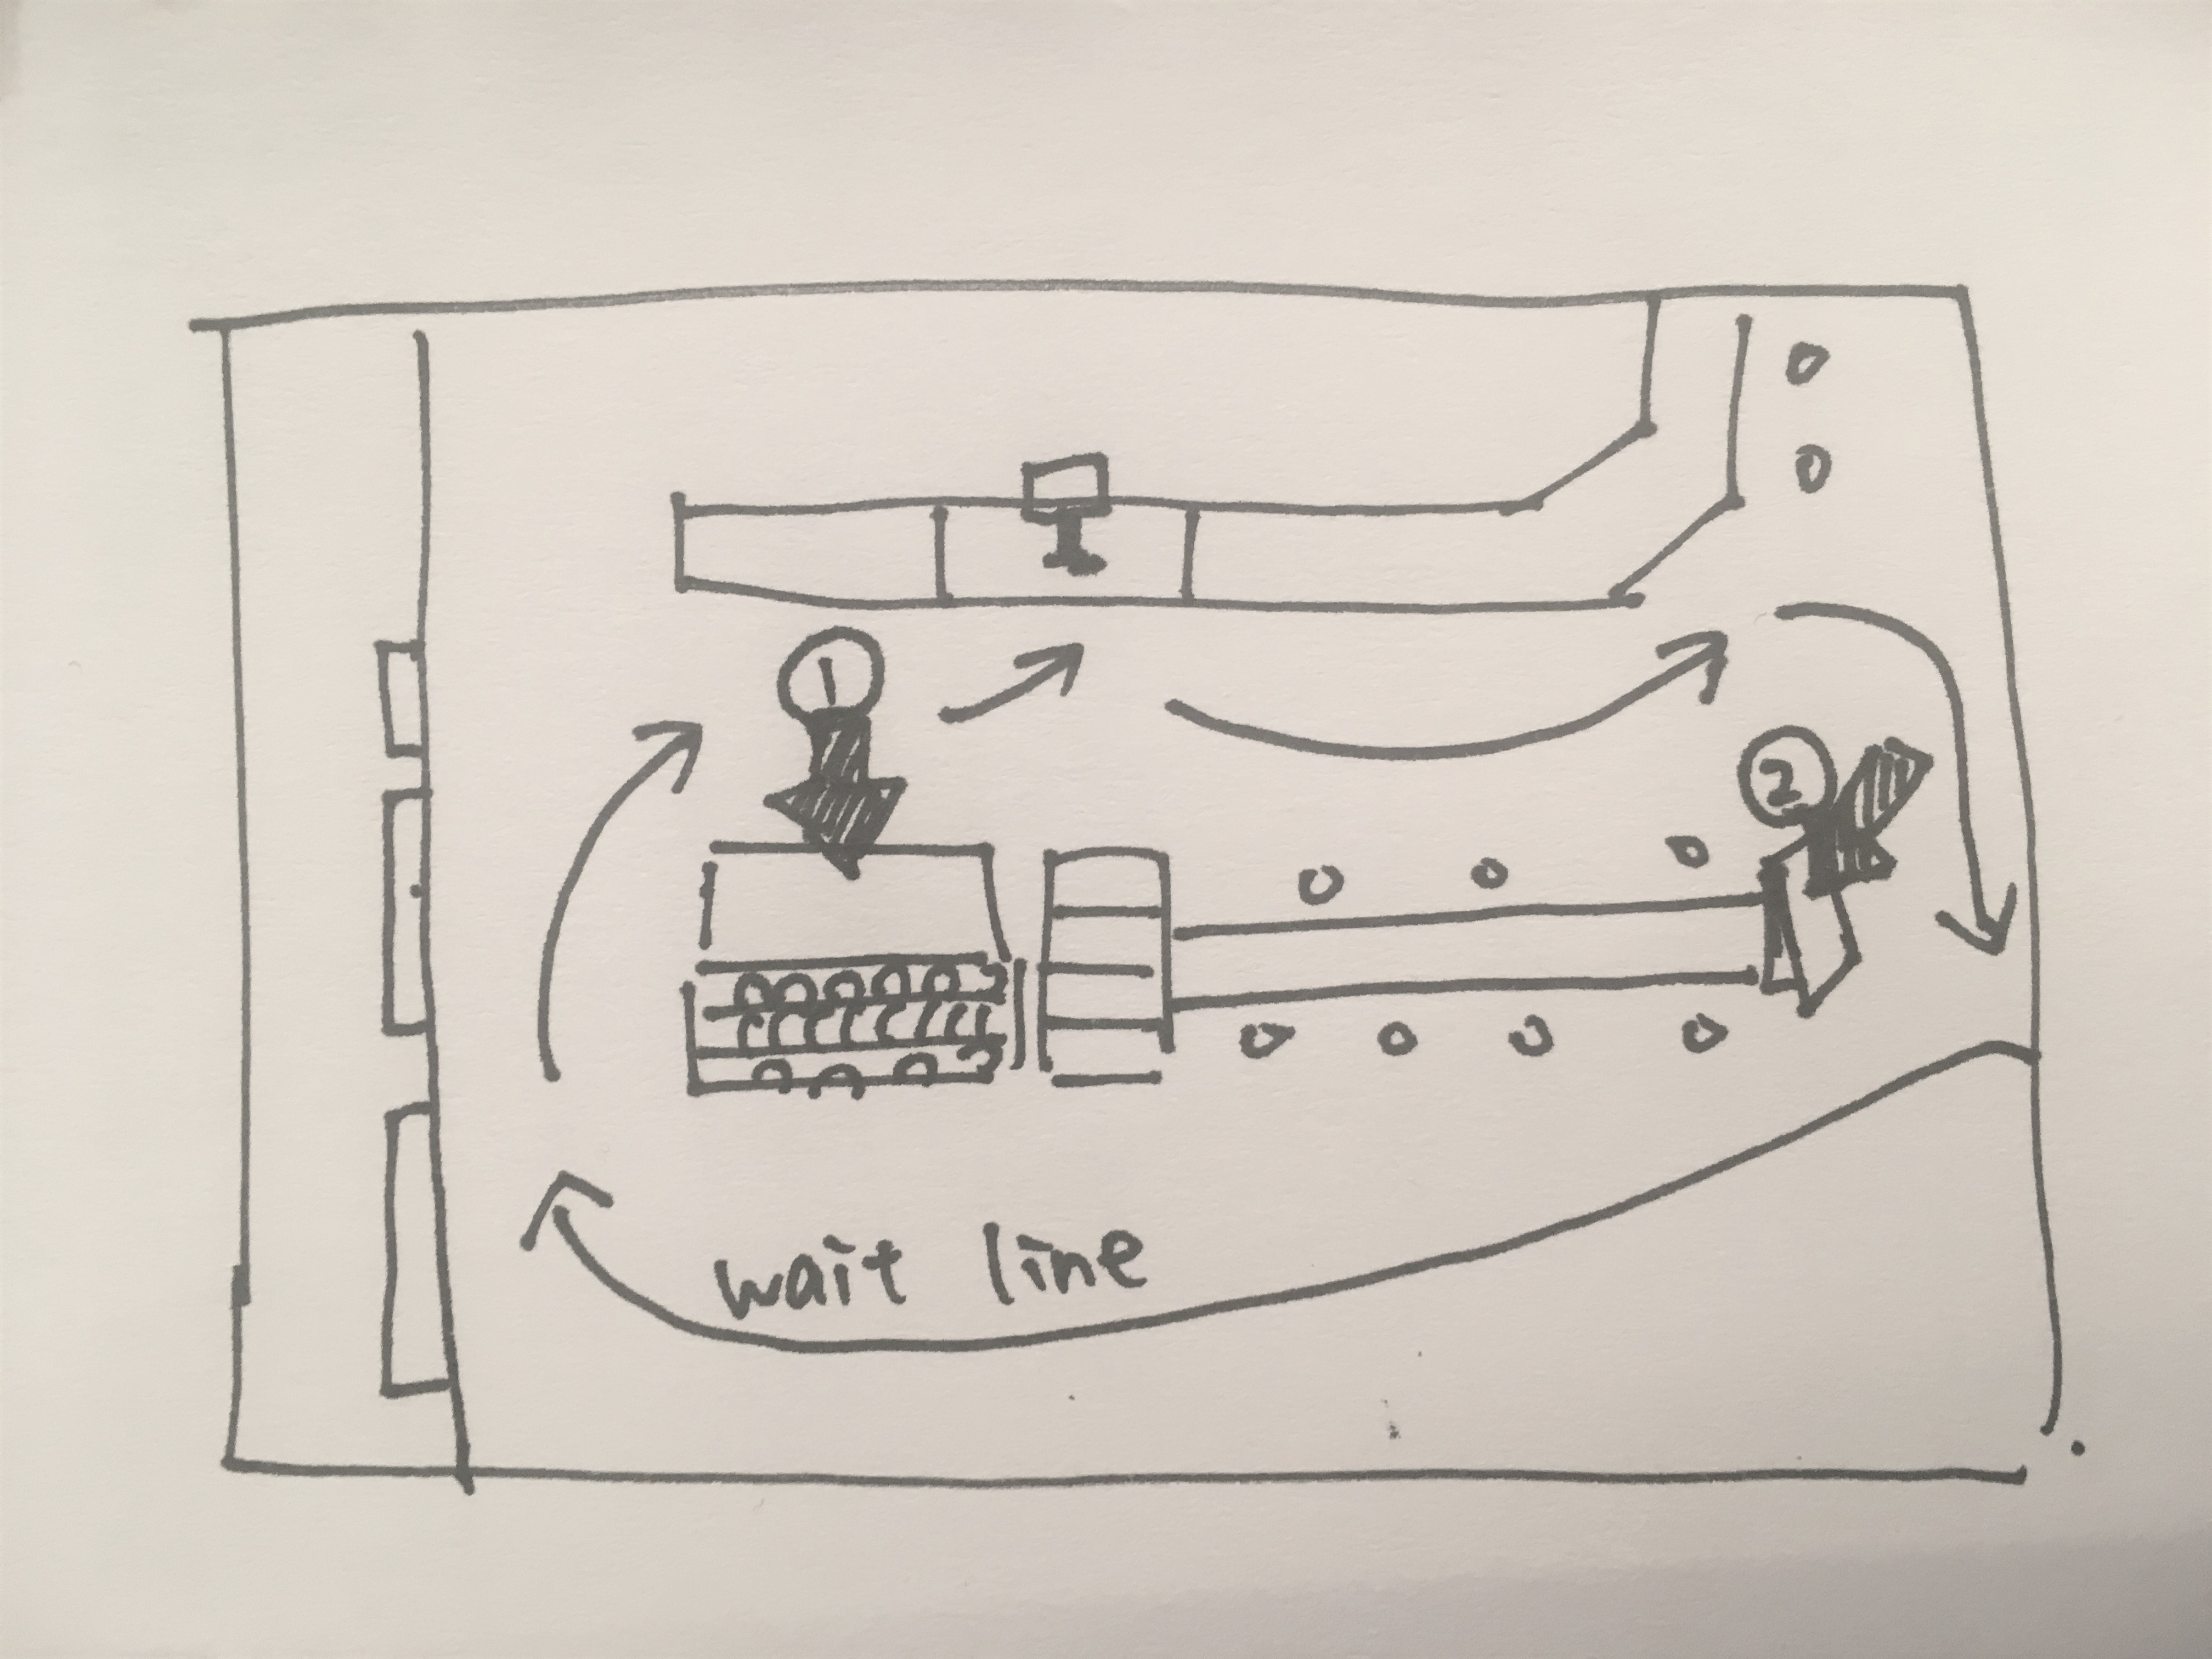 1
2
wait line